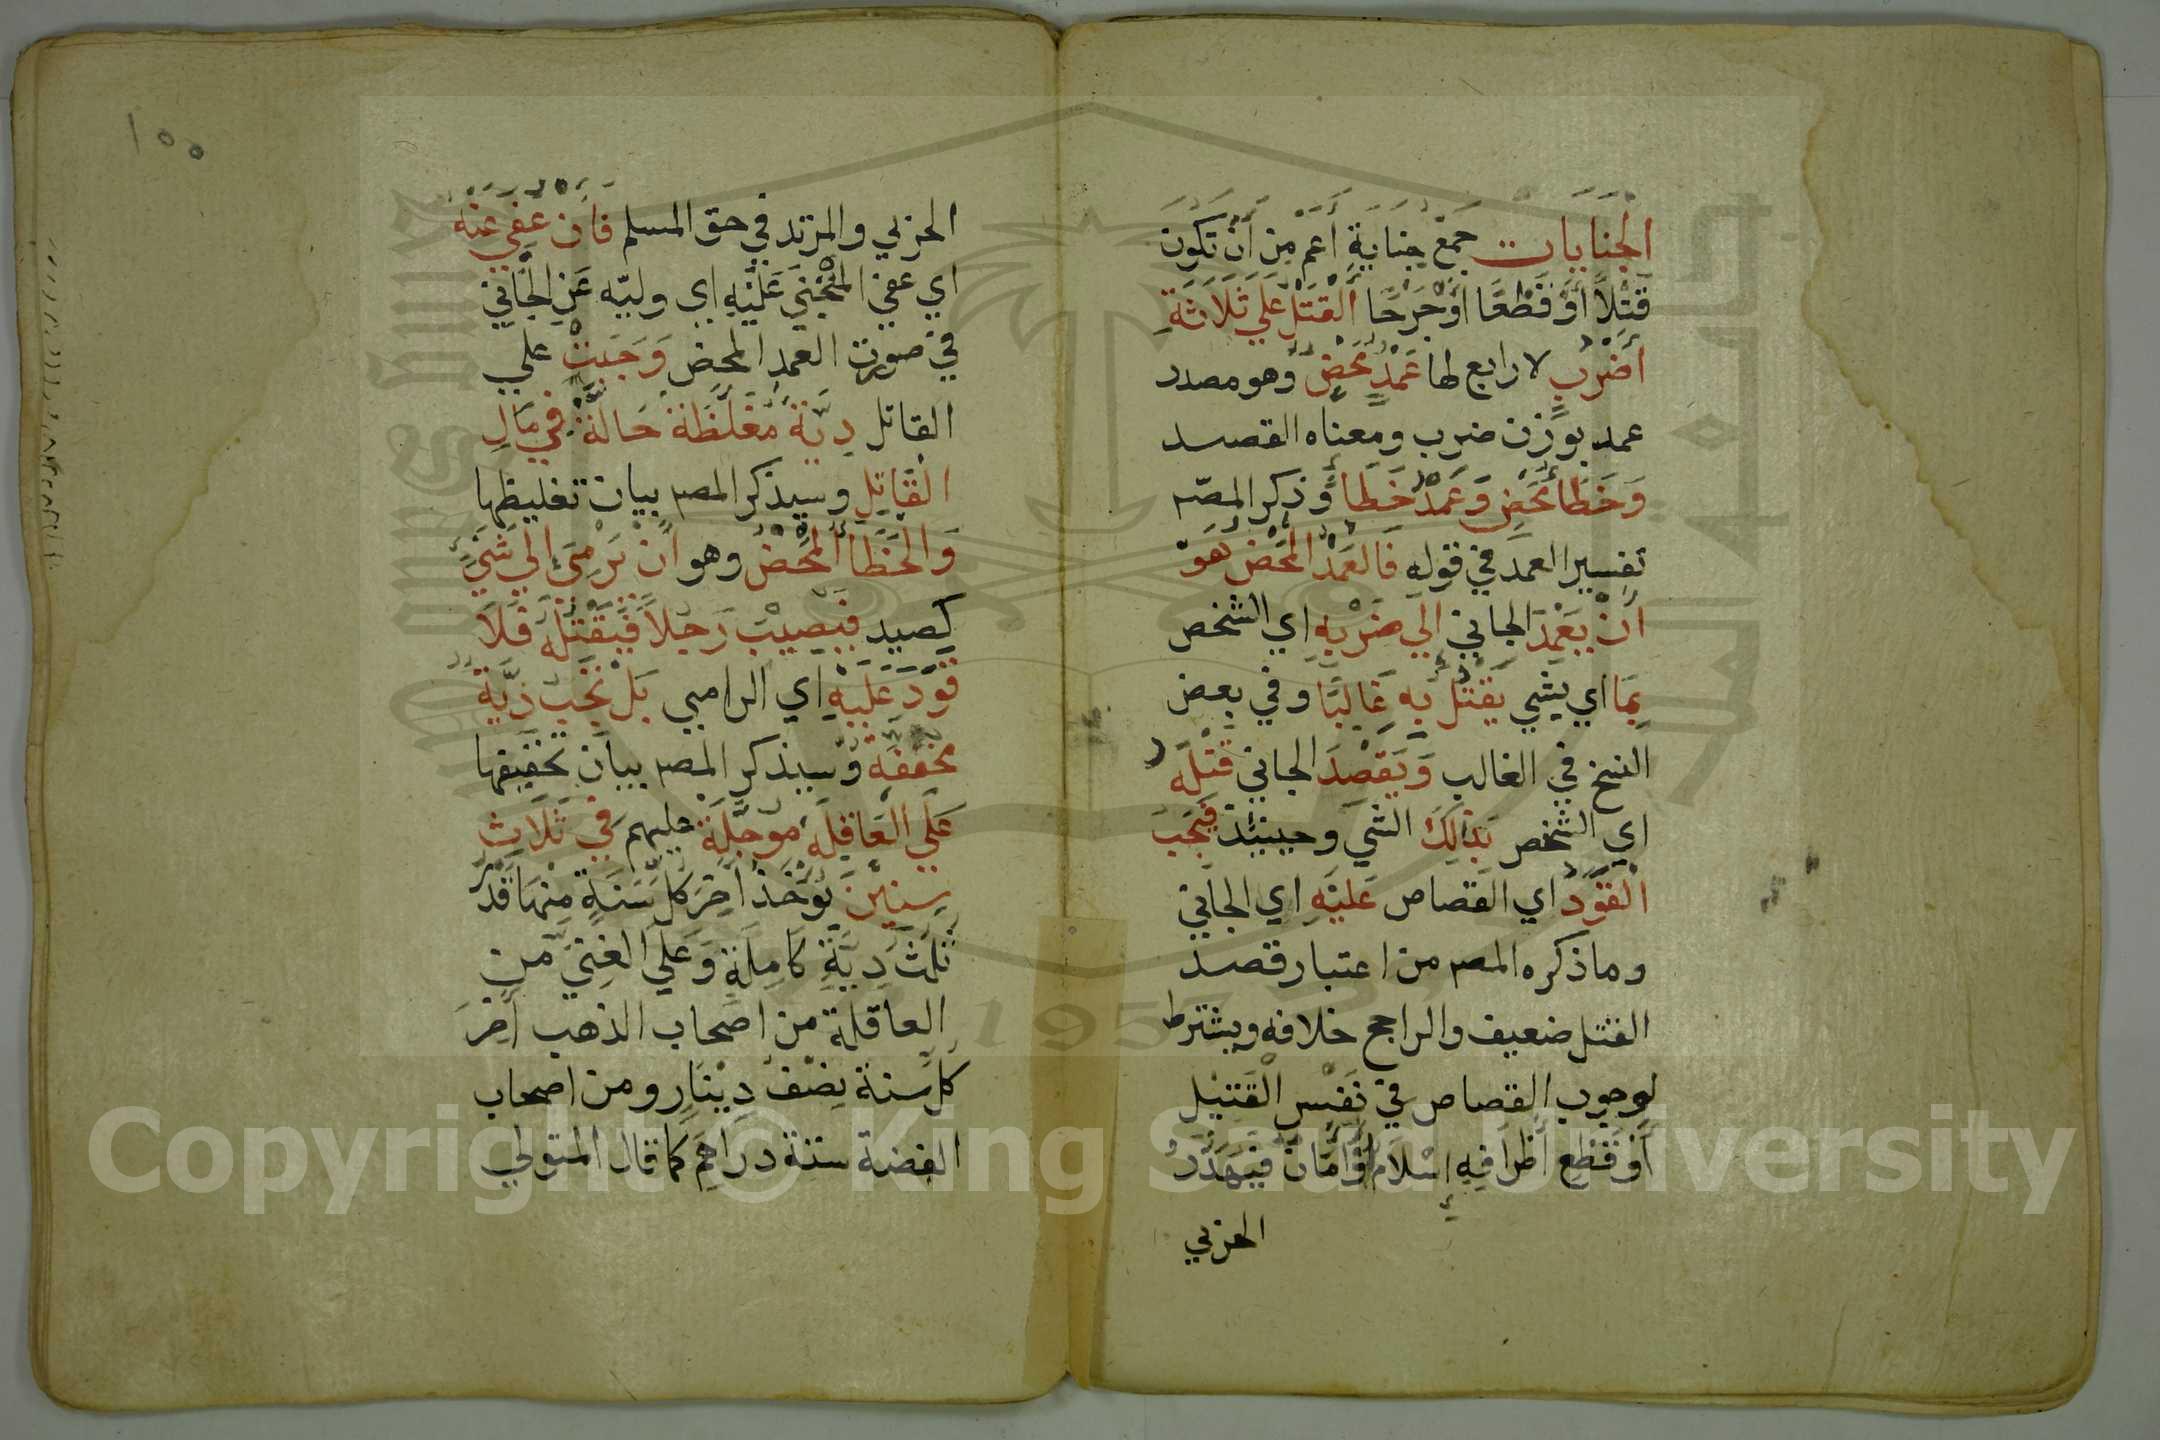 الجنايات جمع جناية أعم من أن تكون
قتلاً أو قطعًا أو جرحًا القتل علي ثلاثة
أضرب لا رابع لها عمد محض وهو مصدر
عمد بوزن ضرب ومعناه القصد
وخطأ محض وعمد خطأ وذكر المص
تفسير العمد في قوله فالعمد المحض هو
أن يعمد الجاني إلي ضربه اي الشخص
بما اي بشي يقتل به غالبًا وفي بعض
النسخ في الغالب ويقصد الجاني قتله
اي الشخص بذلك الشي وحينئذ فيجب
القود اي القصاص عليه اي الجاني
وما ذكره المص من اعتبار قصد
القتل ضعيف والراجح خلافه ويشترط
لوجوب القصاص في نفس القتيل
أو قطع أطرافه إسلام أو أمان فيهدر
الحربي
١٥٥
الحربي والمرتد في حق المسلم فإن عفي عنه
اي عفي المجني عليه اي وليه عن الجاني
في صورة العمد المحض وجبت علي
القاتل دية مغلظة حالة في مال
القاتل وسيذكر المص بيان تغليظها
والخطأ المحض وهو أن يرمي إلي شيء
كصيد فيصيب رجلاً فيقتله فلا
قود عليه اي الرامي بل تجب دية
مخففة وسيذكر المص بيان تخفيفها
علي العاقلة مؤجلة عليهم في ثلاث
سنين يؤخذ آخر كل سنة منها قدر
ثلث دية كاملة وعلي الغني من
العاقلة من اصحاب الذهب آخر
كل سنة نصف دينار ومن اصحاب
الفضة ستة دراهم كما قال المتولي
1957
Copyright © King Saud University